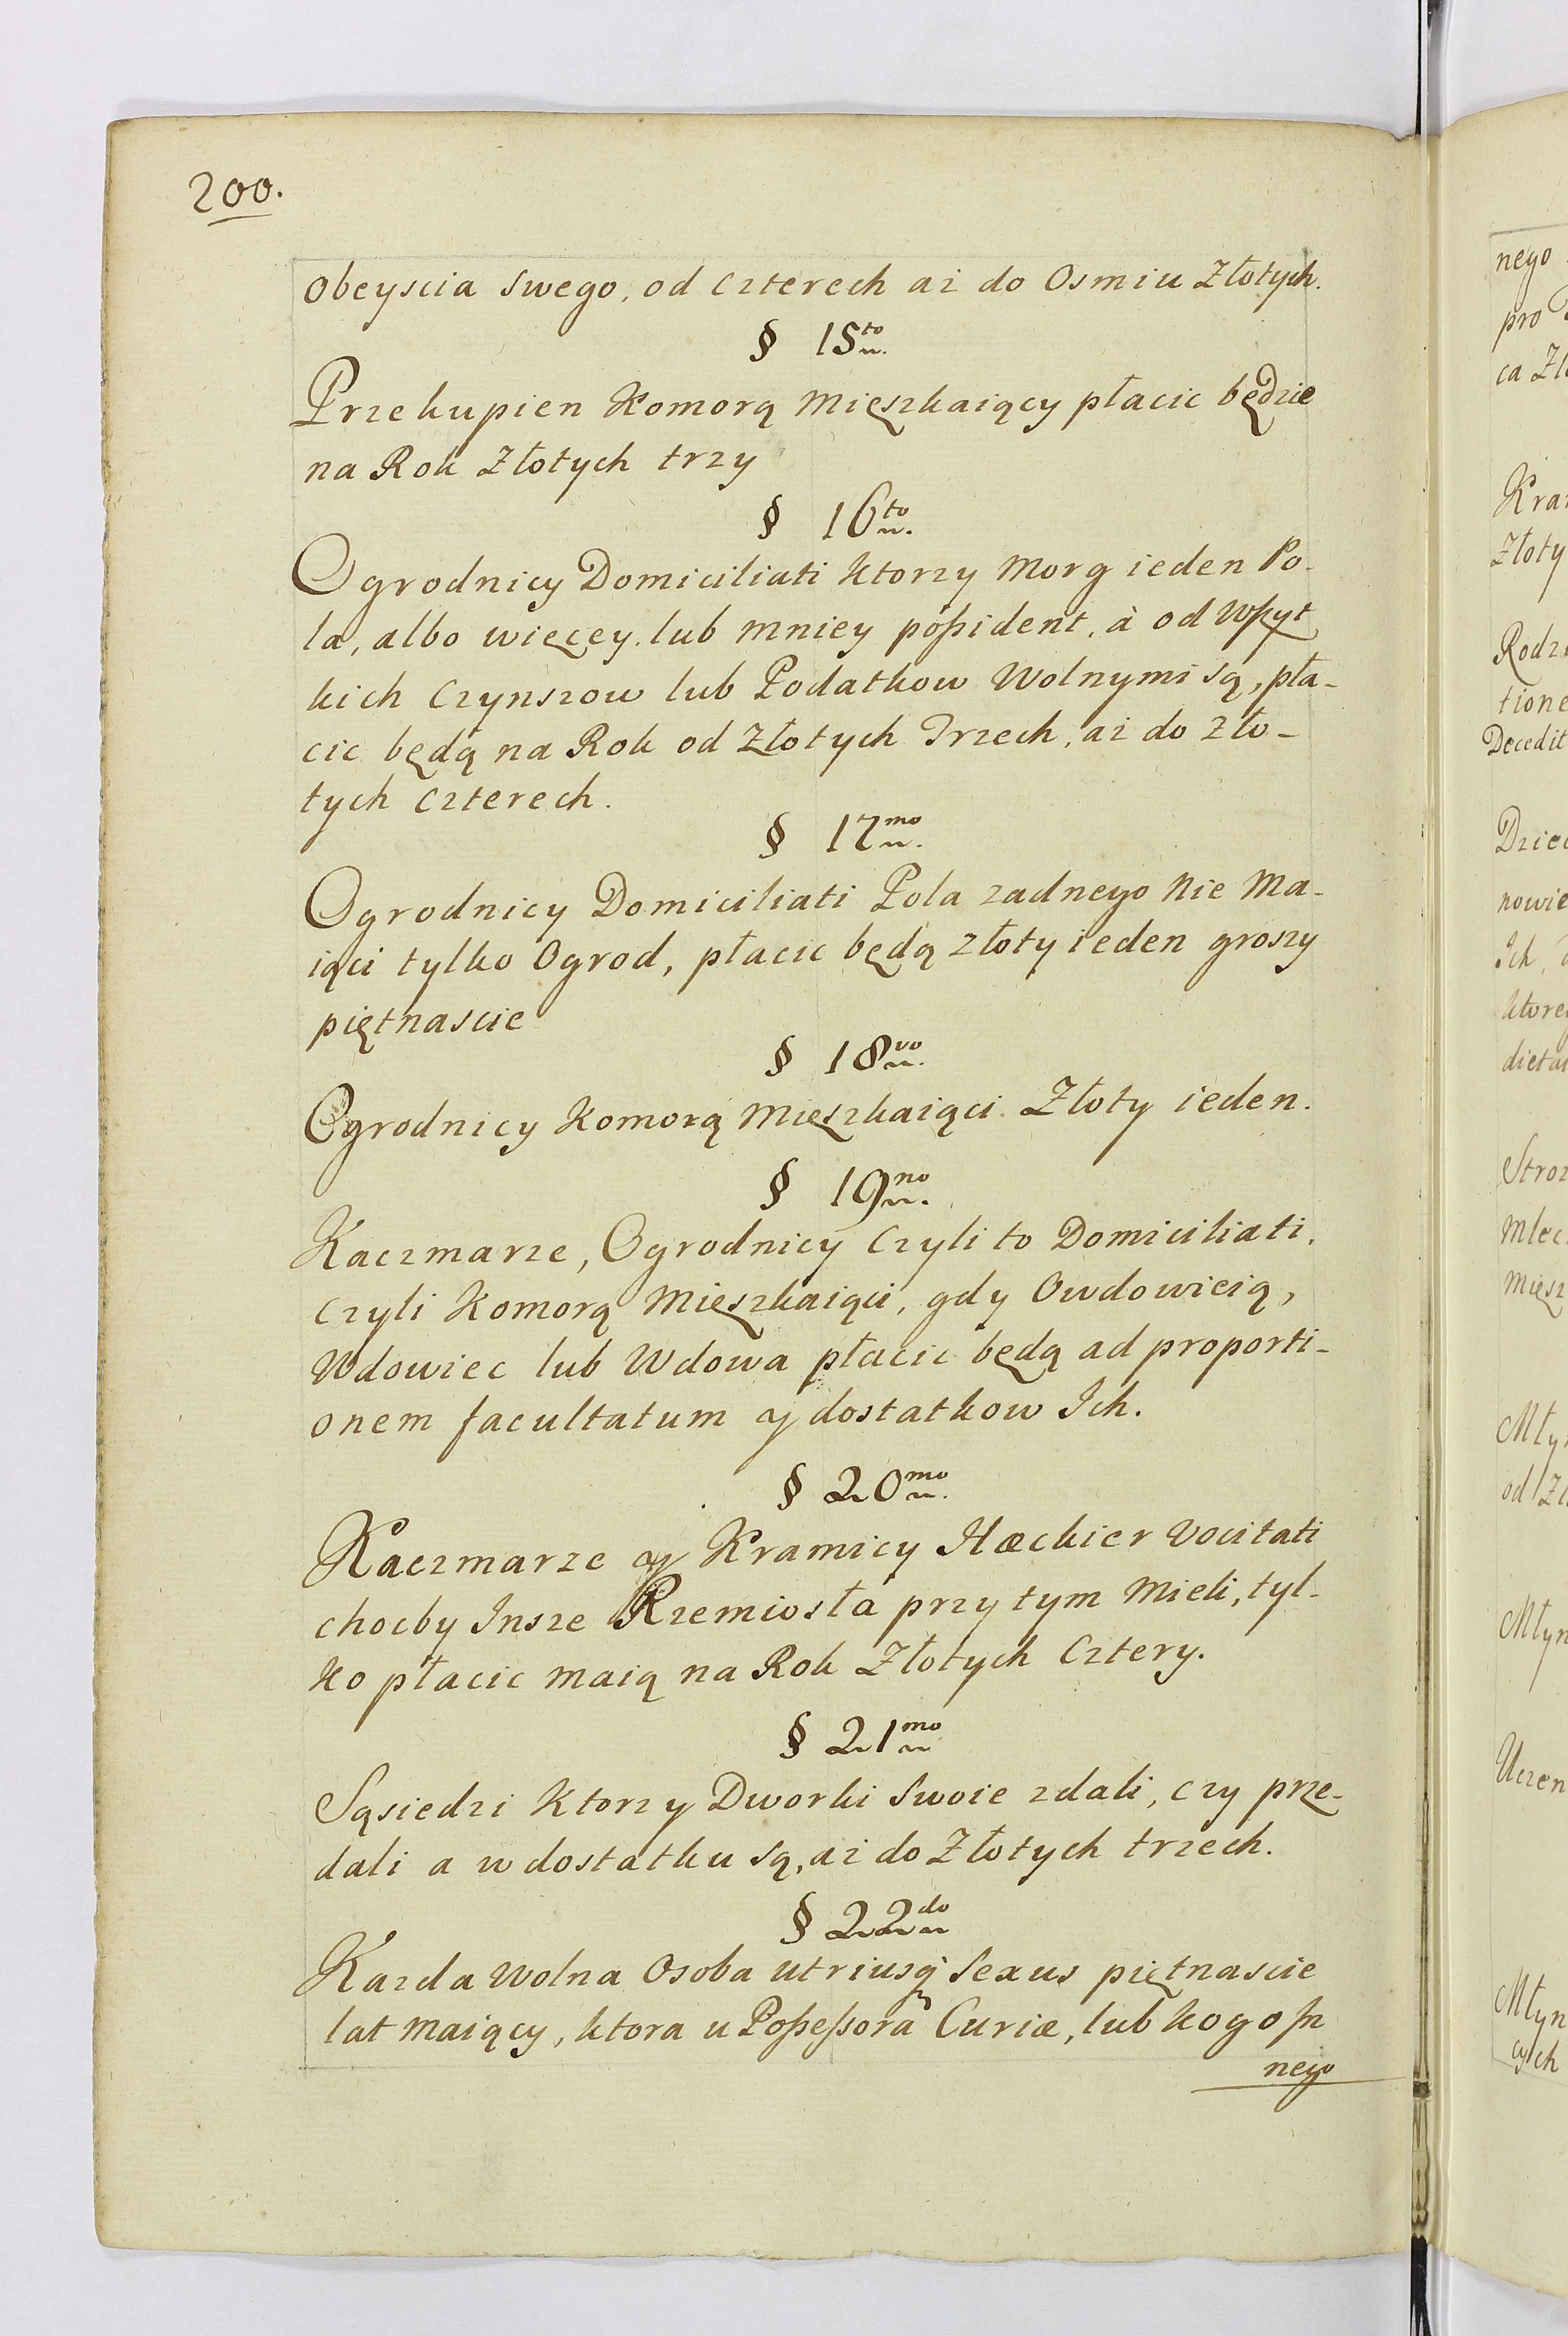 200.
obeyscia swego, od czterech aż do Osmiu Złotych.
§ 15to.
Przekupien Komorą Mięszkaiący płacic będzie
na Rok Złotych trzy
§ 16to.
Ogrodnicy Domiciliati ktorzy Morg ieden Po-
la, albo więcey lub mniey poßident, à od Wßyt
kich Czynszow lub Podatkow Wolnymi są, pła-
cic będą na Rok od Złotych Trzech, aż do zło-
tych czterech.
§ 17mo.
Ogrodnicy Domiciliati Pola zadnego Nie Ma-
iąci tylko Ogrod, płacic będą złoty ieden groszy
piętnascie
§ 18vo.
Ogrodnicy Komorą Mięszkaiąci Złoty ieden.
§ 19no.
Kaczmarze, Ogrodnicy Czyli to Domiciliati,
czyli Komorą Mięszkaiąci, gdy Owdowieią,
Wdowiec lub Wdowa płacic będą ad proporti-
onem facultatum y dostatkow Ich.
§ 20mo.
Kaczmarze y Kramicy Hæckier vocitati
chocby Insze Rzemiosła przy tym Mieli, tyl-
ko płacic maią na Rok Złotych Cztery.
§ 21mo
Sąsiedzi Ktorzy Dworki Swoie zdali, czy prze-
dali a w dostatku są, aż do Złotych trzech.
§ 22do
Kazda Wolna Osoba utriusq Sexus piętnascie
lat maiący, ktora u Poßeßora Curiæ, lub kogo In
nego
nego
pro
ca
Złoty
tione
Decedit
nowie
Ich,
Mlec
Młyn
cych